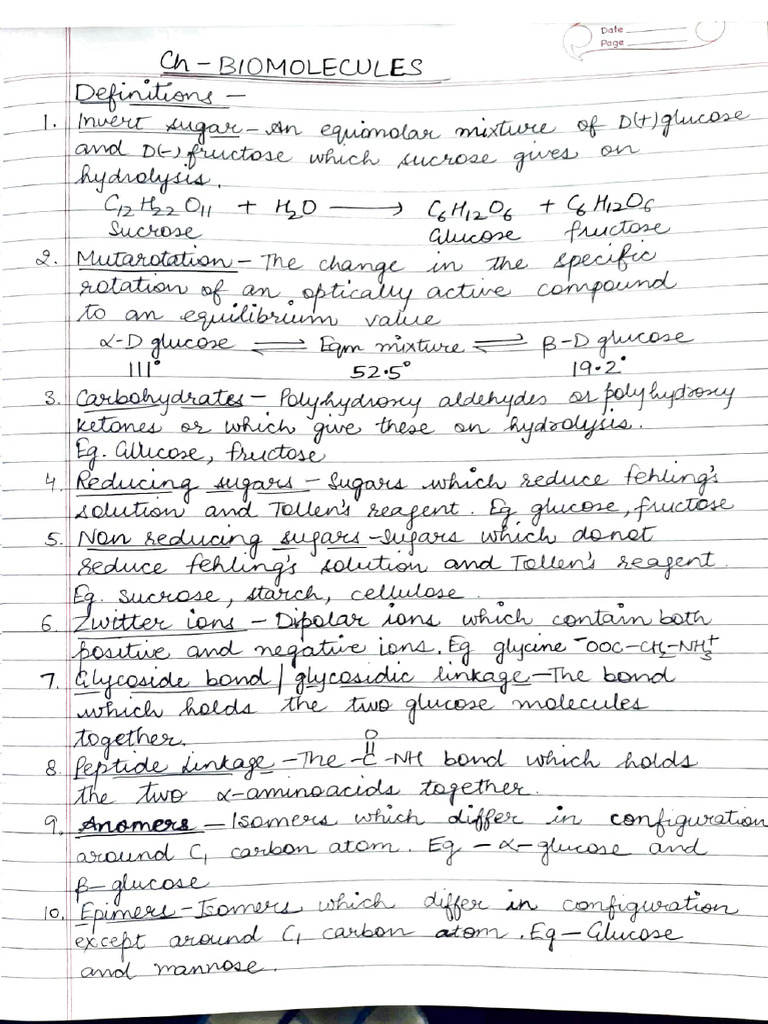 Date
Page
Ch - BIOMOLECULES
Definitions -
1. Invert sugar - An equimolar mixture of D(+)glucose
and D(-) fructose which sucrose gives on
hydrolysis.
C12H22O11 + H2O ⟶ C6H12O6 + C6H12O6
Sucrose Glucose fructose
2. Mutarotation - The change in the specific
rotation of an optically active compound
to an equilibrium value
α-D glucose ⇌ Eqm mixture ⇌ β-D glucose
111° 52.5° 19.2°
3. Carbohydrates - Polyhydroxy aldehydes or polyhydroxy
ketones or which give these on hydrolysis.
Eg. Glucose, fructose
4. Reducing sugars - Sugars which reduce fehling's
solution and Tollen's reagent. Eg glucose, fructose
5. Non reducing sugars - Sugars which donot
reduce fehling's solution and Tollen's reagent.
Eg. sucrose, starch, cellulose.
6. Zwitter ions - Dipolar ions which contain both
positive and negative ions. Eg glycine ⁻OOC-CH2-NH3⁺
7. Glycoside bond / glycosidic linkage - The bond
which holds the two glucose molecules
together.
O
8. Peptide linkage - The -C-NH bond which holds
the two α-aminoacids together.
9. Anomers - Isomers which differ in configuration
around C1 carbon atom. Eg - α-glucose and
β-glucose
10. Epimers - Isomers which differ in configuration
except around C1 carbon atom. Eg - Glucose
and mannose.